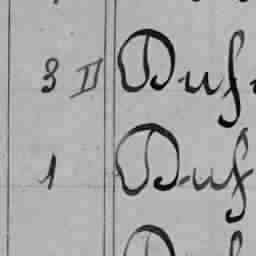 3 II Duf
1 Duf